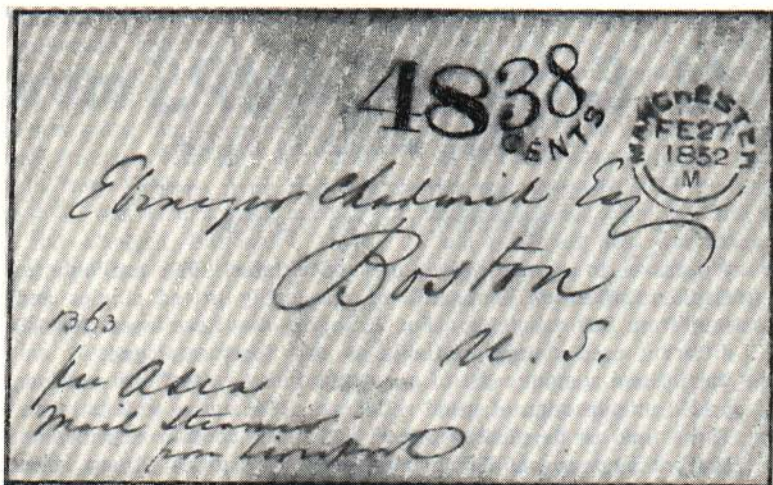 48
38
CENTS
MANCHESTER
FE27
1852
M
Ebenezer Chadwick Esq
Boston
U. S.
1363
per Asia
Mail Steamer
from Liverpool